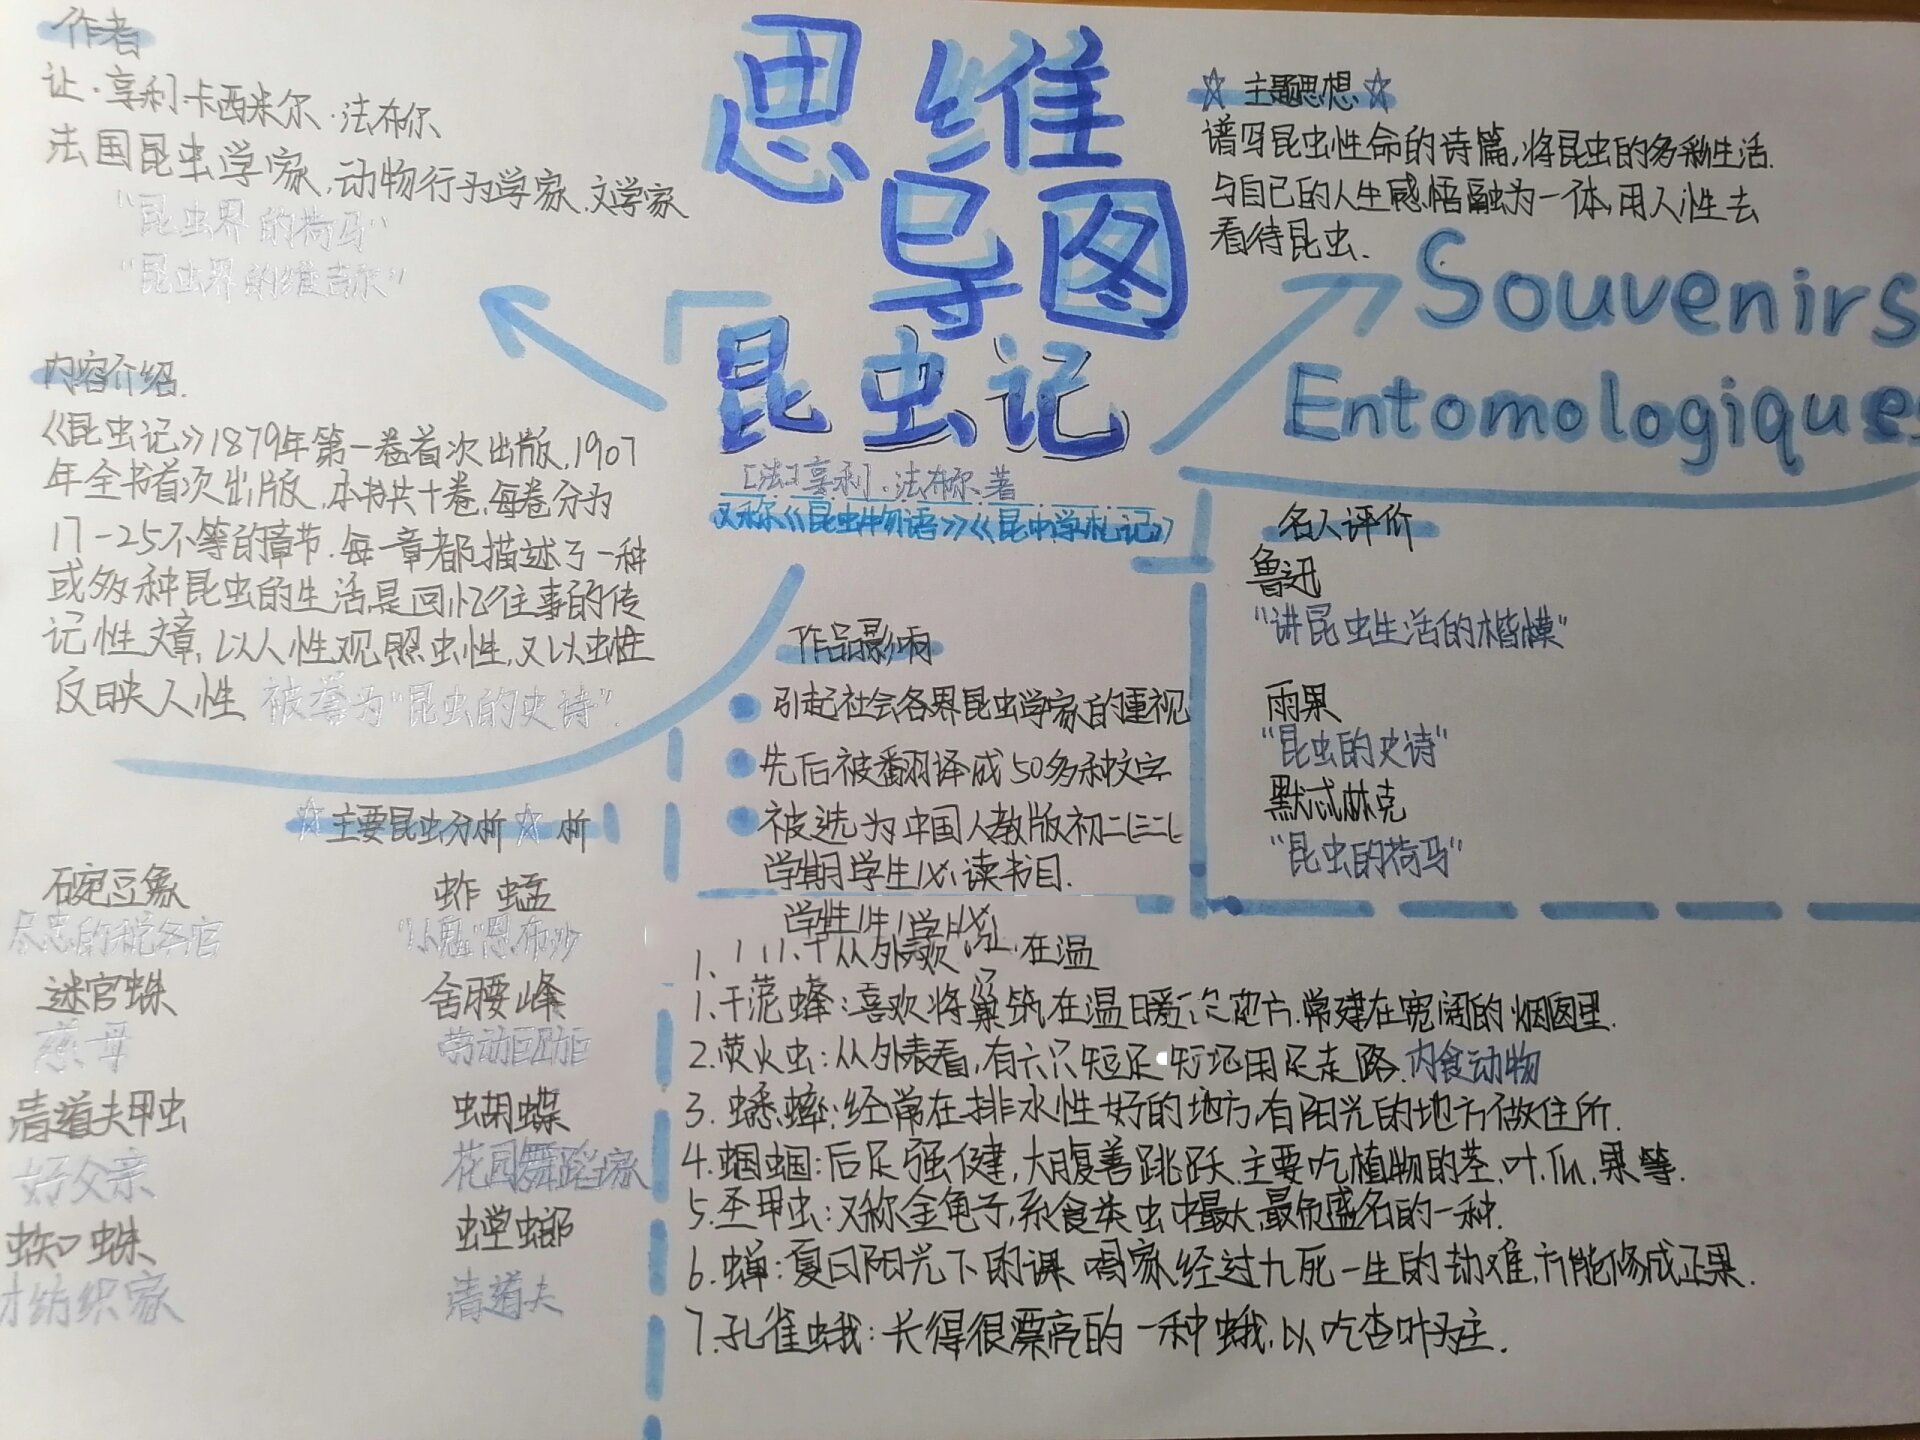 思维
导图
昆虫记
[法]亨利·法布尔 著
又称《昆虫物语》《昆虫学札记》
作者
让·亨利·卡西米尔·法布尔
法国昆虫学家,动物行为学家.文学家
"昆虫界的荷马"
"昆虫界的维吉尔"
☆ 主题思想 ☆
谱写昆虫性命的诗篇,将昆虫的多彩生活.
与自己的人生感悟融为一体,用人性去
看待昆虫.
Souvenirs
Entomologiques
内容介绍.
《昆虫记》1879年第一卷首次出版,1907
年全书首次出版,本书共十卷,每卷分为
17-25不等的章节.每一章都描述了一种
或多种昆虫的生活是回忆往事的传
记性文章,以人性观照虫性,又以虫性
反映人性 被誉为"昆虫的史诗".
作品影响
引起社会各界昆虫学家的重视
先后被翻译成50多种文字
被选为中国人教版初二
学期学生必读书目.
名人评价
鲁迅
"讲昆虫生活的楷模"
雨果
"昆虫的史诗"
默忒林克
"昆虫的荷马"
☆主要昆虫分析☆ 析
碗豆象
尽忠的税务官
迷宫蛛
慈母
清道夫甲虫
好父亲
蜘蛛
纺织家
蚱蜢
"小鬼"恩布沙
舍腰峰
劳动
蝴蝶
花园舞蹈家
螳螂
清道夫
1.
从外 欢 在温
1.干泥蜂:喜欢将巢筑在温暖 地方.常建在宽阔的烟囱里.
2.萤火虫:从外表看,有六只短足 用足走路.肉食动物
3.蟋蟀:经常在排水性好的地方,有阳光的地方做住所.
4.蝈蝈:后足强健,大腹善跳跃.主要吃植物的茎.叶.瓜.果等.
5.圣甲虫:又称金龟子,系食粪虫中最大,最负盛名的一种.
6.蝉:夏日阳光下的 唱家,经过九死一生的劫难,方能修成正果.
7.孔雀蛾:长得很漂亮的一种蛾,以吃杏叶为主.